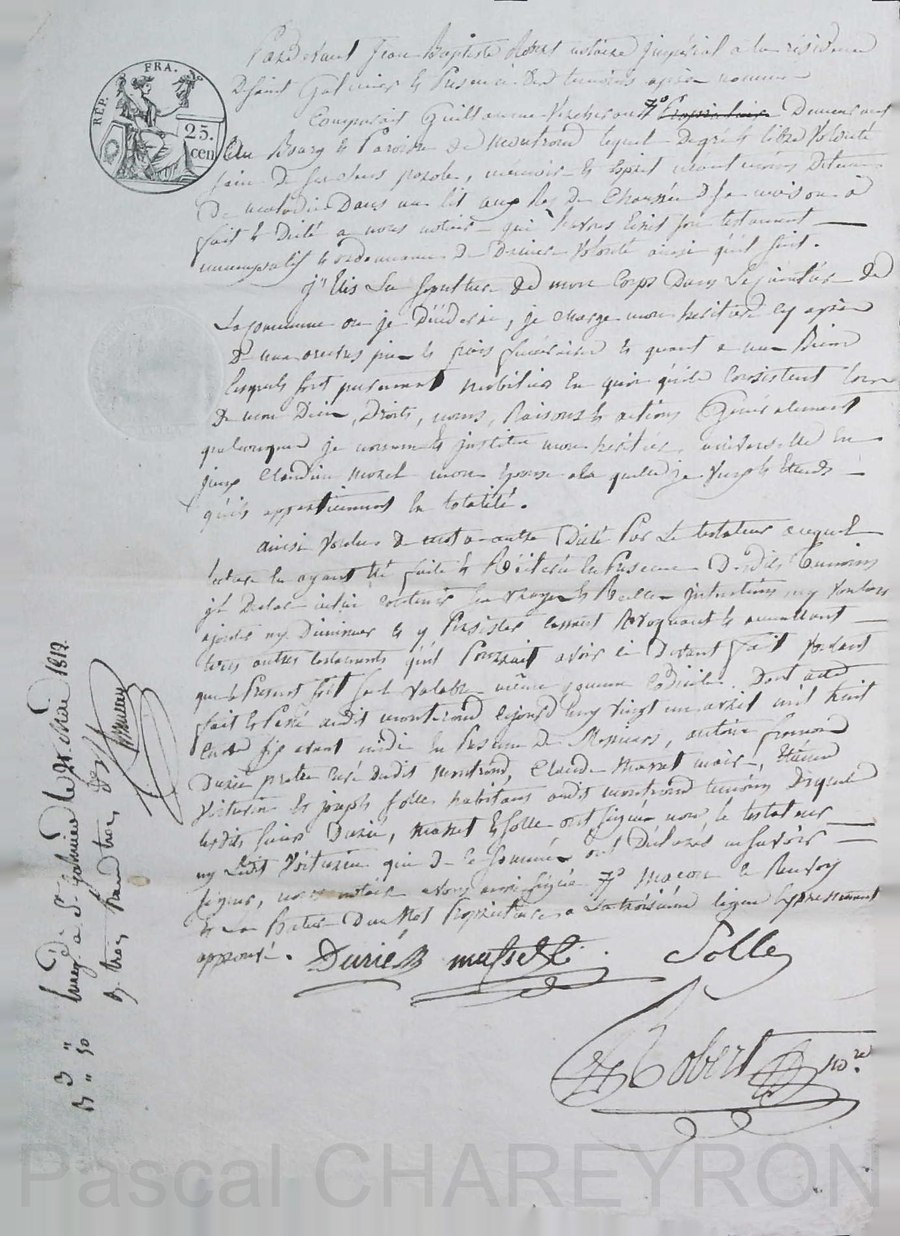 RÉP. FRA.
25. cen
Pardevant Jean Baptiste Robert notaire Impérial a la résidence
De saint Galmier En Presence Des temoins après nommés
Comparait Guillaume 7° Proprietaire Demeurant
Au Bourg & Paroisse de Montrond lequel De gré & libre Volonté
sain De ses sens parole, memoire & Esprit neantmoins Detenu
De maladie Dans un lit au Rez de Chaussée De sa maison a
fait & Dicté a nous notaire qui avons Ecrit son testament
nuncupatif & ordonnance De Derniere Volonté ainsi qu'il suit.
J'Elis La sepulture De mon Corps Dans Le cimetière De
La Commune ou je Décéderai, je charge mon heritiere cy après
De mes œuvres pies & frais funéraires & quant a mes Biens
lesquels sont purement mobiliers En quoi qu'ils Consistent
De mon Dieu, Droits, noms, Raisons & actions Généralement
quelconques je nomme & institue mon heritière universelle
Claudine Morel mon Epouse a la quelle je Veux & Entends
qu'ils appartiennent En totalité.
ainsi Voulu De mot a autre Dicté Par Le testateur auquel
lecture En ayant été faite & Réiterée En Presence Desdits temoins
il Declare icelui Contenir ses Vrayes & Réelles intentions ny Vouloir
ajouter ny Diminuer & y Persister Cassant Revoquant & annullant
tous autres testaments qu'il Pourrait avoir ci Devant fait Voulant
que le Present soit seul Valable même comme Codicile. Dont acte
fait & Passé audit montrond cejourd'huy Vingt un avril mil huit
Cent Six avant midi En Presence De Messieurs, antoine
Durié pretre Curé dudit montrond, Claude Masset maire, Etienne
Voiturier & joseph Solle habitans audit montrond temoins Desquels
lesdits sieurs Durié, Masset & Solle ont signé non le testateur
ny Ledit Voiturier qui De ce sommés ont Déclarés ne savoir
signer, nous notaire avons aussi signé 7° maçon a Renvoy
& La Rature Du mot Proprietaire a La troisième ligne Expressement
approuvé. Durié masset Solle
Robert no.re
Enreg. à St Galmier le 1812.
trois francs
3 "
" 30
Pascal CHAREYRON